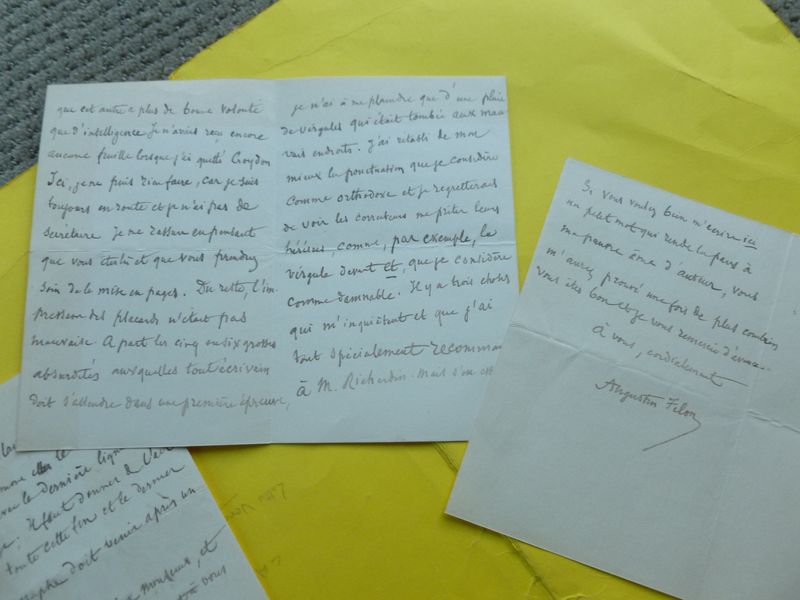 que cet autre a plus de bonne volonté
que d'intelligence. Je n'avais reçu encore
aucune feuille lorsque j'ai quitté Croydon
Ici, je ne puis rien faire, car je suis
toujours en route et je n'ai pas de
secrétaire. Je me rassure en pensant
que vous êtes là et que vous prendrez
soin de la mise en pages. Du reste, l'im-
pression des placards n'était pas
mauvaise. A part les cinq ou six grosses
absurdités auxquelles tout écrivain
doit s'attendre dans une première épreuve,
je n'ai à me plaindre que d'une pluie
de virgules qui était tombée aux mau
vais endroits. J'ai rétabli de mon
mieux la ponctuation que je considère
comme orthodoxe et je regretterais
de voir les correcteurs me prêter leurs
hérésies, comme, par exemple, la
virgule devant et, que je considère
comme damnable. Il y a trois choses
qui m'inquiètent et que j'ai
tout spécialement recomman
à M. Richardin. Mais s'en est
Si vous voulez bien m'écrire ici
un petit mot qui rende la paix à
ma pauvre âme d'auteur, vous
m'aurez prouvé une fois de plus combien
vous êtes bon et je vous remercie d'avance.
À vous, cordialement
Augustin Filon
la dernière lign
Il faut donner à
toute cette fin et le dernier
doit venir après un
monsieur, et
à vous